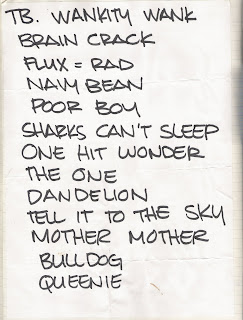 TB. WANKITY WANK
BRAIN CRACK
FLUX = RAD
NAVY BEAN
POOR BOY
SHARKS CAN'T SLEEP
ONE HIT WONDER
THE ONE
DANDELION
TELL IT TO THE SKY
MOTHER MOTHER
BULLDOG
QUEENIE